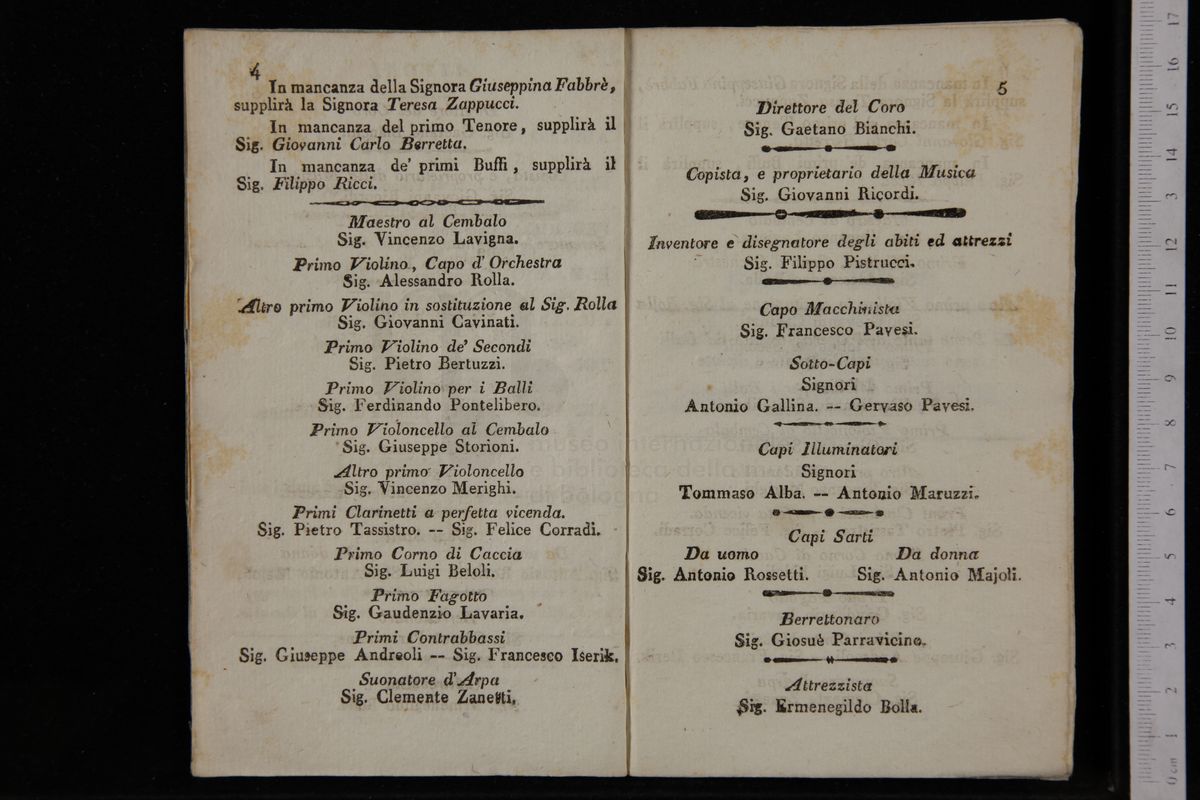 4
In mancanza della Signora Giuseppina Fabbrè,
supplirà la Signora Teresa Zappucci.
In mancanza del primo Tenore, supplirà il
Sig. Giovanni Carlo Berretta.
In mancanza de' primi Buffi, supplirà il
Sig. Filippo Ricci.
Maestro al Cembalo
Sig. Vincenzo Lavigna.
Primo Violino, Capo d'Orchestra
Sig. Alessandro Rolla.
Altro primo Violino in sostituzione al Sig. Rolla
Sig. Giovanni Cavinati.
Primo Violino de' Secondi
Sig. Pietro Bertuzzi.
Primo Violino per i Balli
Sig. Ferdinando Pontelibero.
Primo Violoncello al Cembalo
Sig. Giuseppe Storioni.
Altro primo Violoncello
Sig. Vincenzo Merighi.
Primi Clarinetti a perfetta vicenda.
Sig. Pietro Tassistro. -- Sig. Felice Corradi.
Primo Corno di Caccia
Sig. Luigi Beloli.
Primo Fagotto
Sig. Gaudenzio Lavaria.
Primi Contrabbassi
Sig. Giuseppe Andreoli -- Sig. Francesco Iserik.
Suonatore d'Arpa
Sig. Clemente Zanetti.
5
Direttore del Coro
Sig. Gaetano Bianchi.
Copista, e proprietario della Musica
Sig. Giovanni Ricordi.
Inventore e disegnatore degli abiti ed attrezzi
Sig. Filippo Pistrucci.
Capo Macchinista
Sig. Francesco Pavesi.
Sotto-Capi
Signori
Antonio Gallina. -- Gervaso Pavesi.
Capi Illuminatori
Signori
Tommaso Alba. -- Antonio Maruzzi.
Capi Sarti
Da uomo Da donna
Sig. Antonio Rossetti. Sig. Antonio Majoli.
Berrettonaro
Sig. Giosuè Parravicino.
Attrezzista
Sig. Ermenegildo Bolla.
museo internazionale
e biblioteca della musica
di Bologna
0 cm 1 2 3 4 5 6 7 8 9 10 11 12 13 14 15 16 17